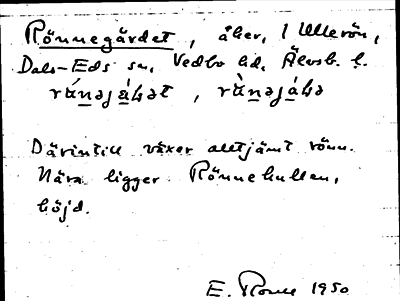 Rönnegärdet, åker, i Ullerön,
Dals-Eds sn, Vedbo hd, Älvsb. l.
Därintill växer alltjämt rönn.
Nära ligger Rönnekullen,
höjd.
E. 1950